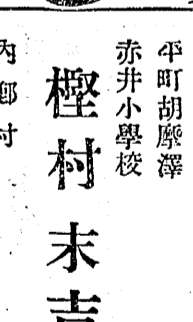 平町胡摩澤
赤井小學校
樫村末吉
内郷村